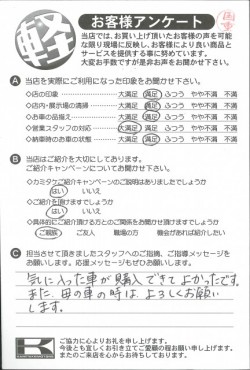 軽
お客様アンケート
当店では、お買い上げ頂いたお客様の声を可能
な限り現場に反映し、お客様により良い商品と
サービスを提供する事に努めています。
大変お手数ですが是非お声をお聞かせ下さい。
A 当店を実際にご利用になった印象をお聞かせ下さい。
◇店の印象 大満足 満足 ふつう やや不満 不満
◇店内・展示場の清掃 大満足 満足 ふつう やや不満 不満
◇お車の品揃え 大満足 満足 ふつう やや不満 不満
◇営業スタッフの対応 大満足 満足 ふつう やや不満 不満
◇納車時のお車の状態 大満足 満足 ふつう やや不満 不満
B 当店はご紹介を大切にしております。
ご紹介キャンペーンについてお聞かせ下さい。
◇カミタケご紹介キャンペーンのご説明はありましたでしょうか
はい いいえ
◇ご紹介を頂けますでしょうか
はい いいえ
◇具体的にご紹介頂ける方とのご関係をお聞かせ頂けますでしょうか
ご親族 ご友人 職場の方 機会があれば紹介したい
C 担当させて頂きましたスタッフへのご指摘、ご指導メッセージを
お願いします。応援メッセージもぜひお願いします。
気に入った車が購入できてよかったです。
また、母の車の時は、よろしくお願い
します。
K
ご協力に心よりお礼を申し上げます。
今後とも宜しくお引き立てご愛顧の程お願い申し上げます。
またのご来店を心からお待ちしております。